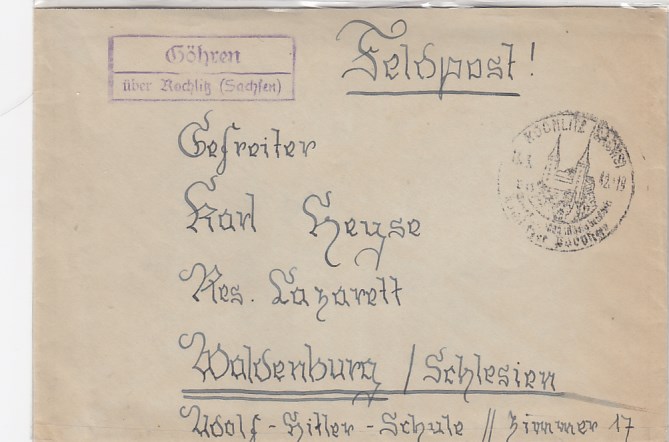 Göhren
über Rochlitz (Sachsen)
Feldpost!
ROCHLITZ (SACHS)
42.-19
Gefreiter
Karl Heyse
Res. Lazarett
Waldenburg / Schlesien
Adolf-Hitler-Schule // Zimmer 17